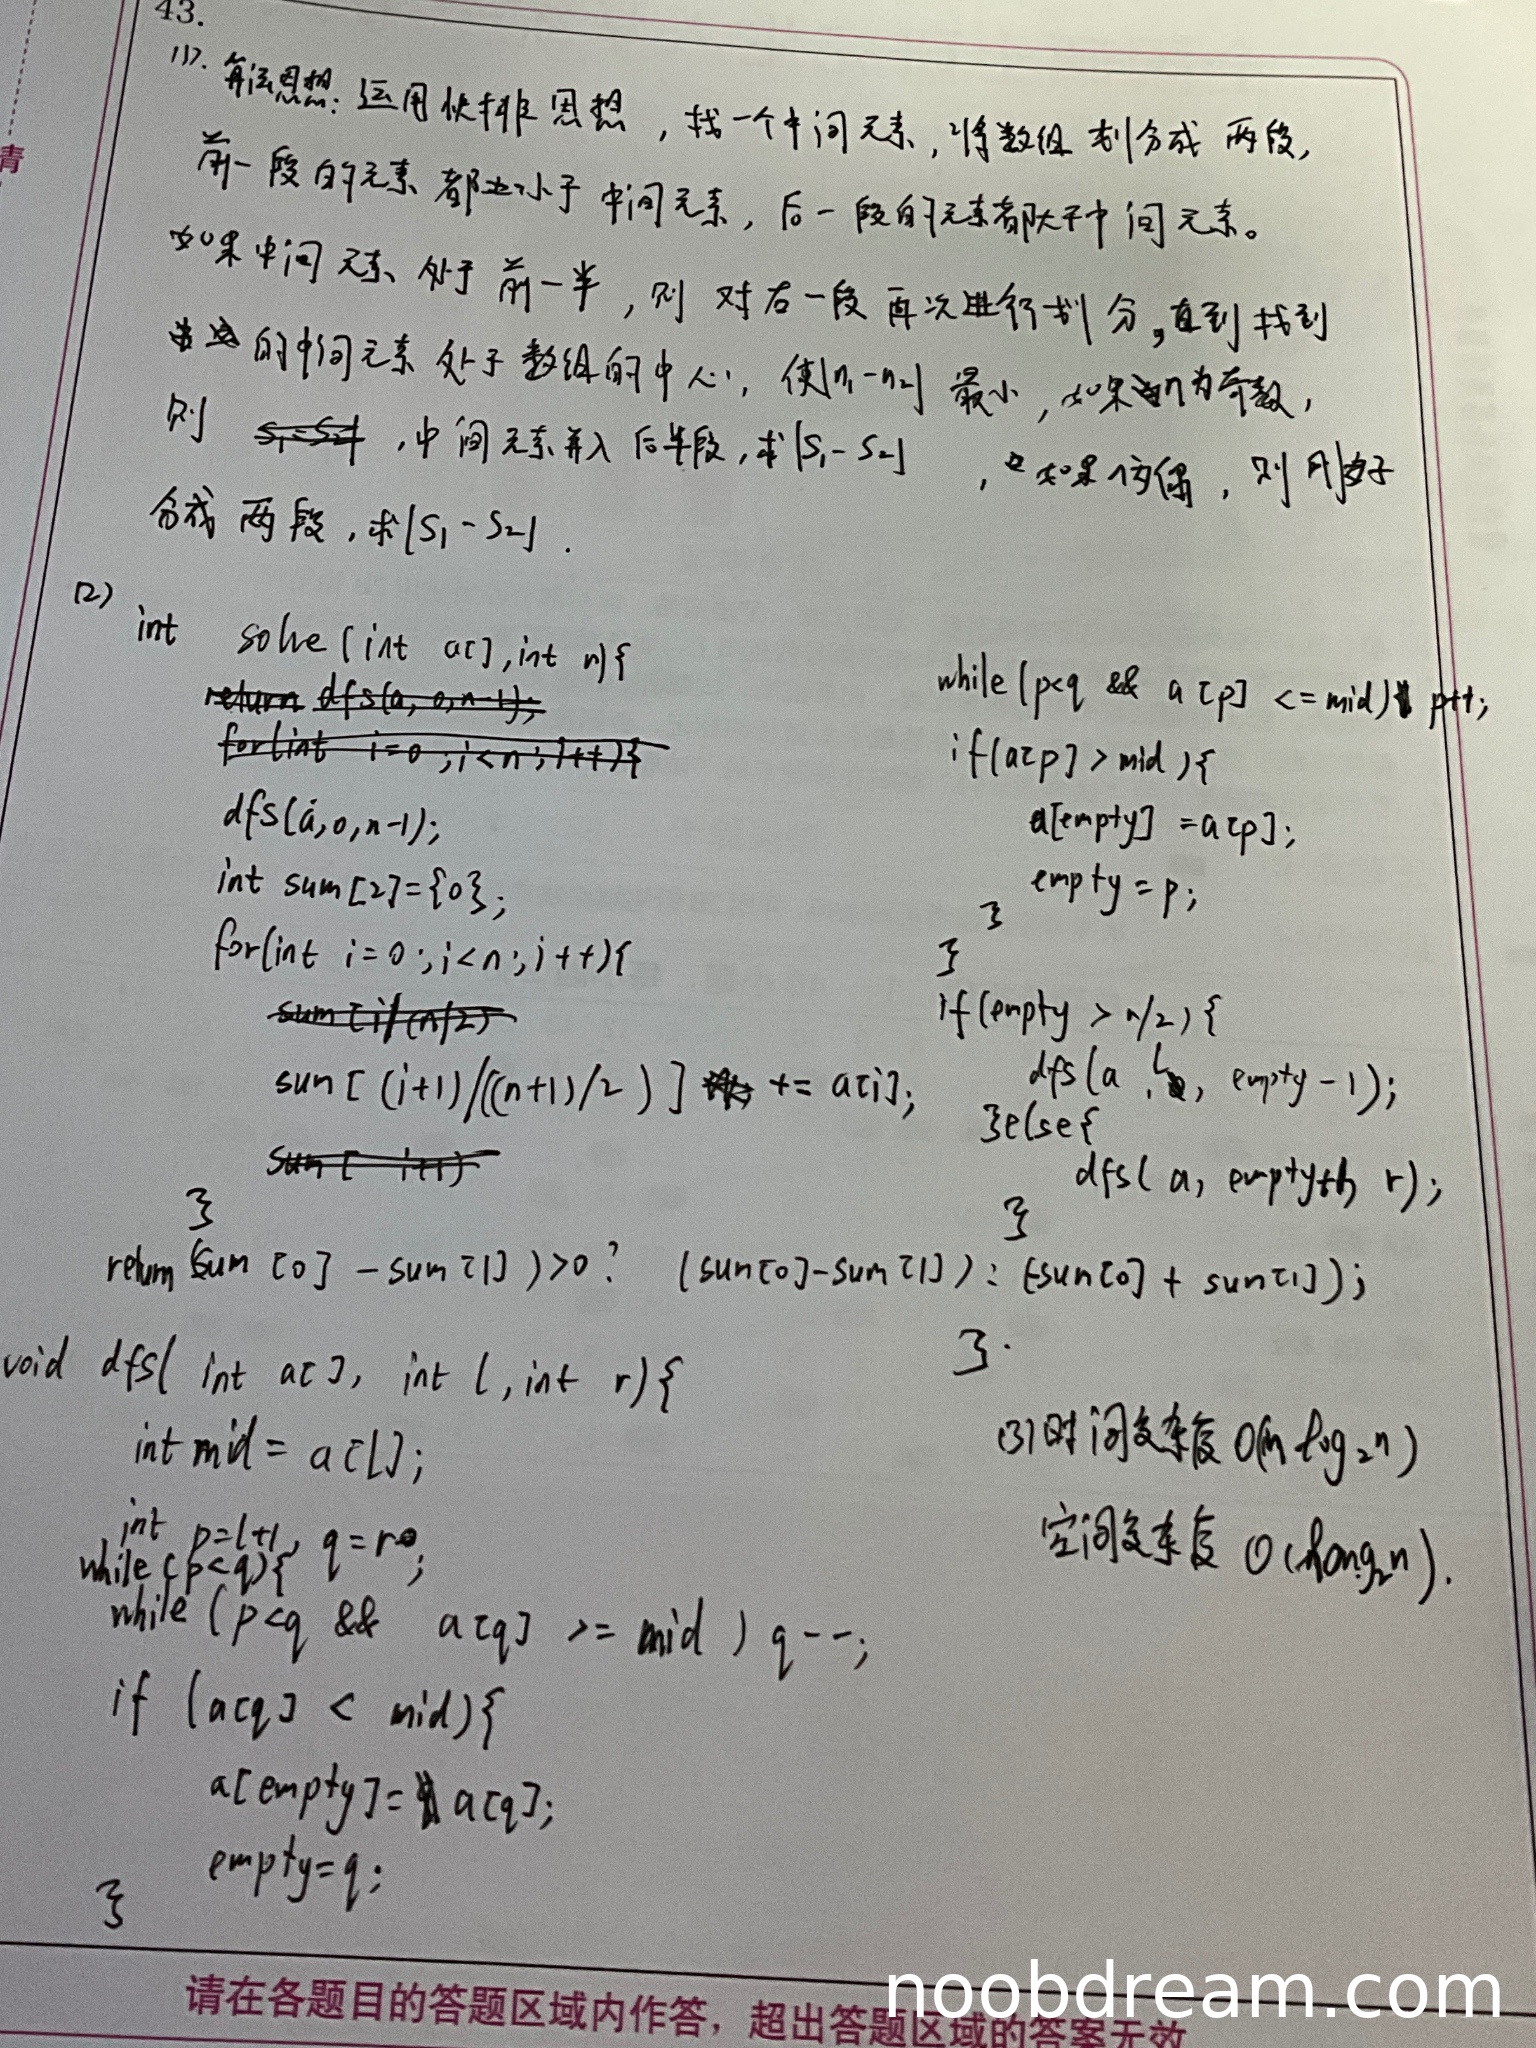 43.
(1). 算法思想: 运用快排思想，找一个中间元素，将数组划分成两段，
前一段的元素都小于中间元素，后一段的元素都大于中间元素。
如果中间元素处于前一半，则对右一段再次进行划分，直到找到
的中间元素处于数组的中心，使|n₁-n₂|最小，如果n为奇数，
则 S₁=S₂ ，中间元素并入后半段，求|S₁-S₂| ，如果n为偶，则刚好
分成两段，求|S₁-S₂|.
(2)
int solve(int a[],int n){
return dfs(a,0,n-1);
for(int i=0;i<n;i++){
dfs(a,0,n-1);
int sum[2]={0};
for(int i=0;i<n;i++){
sum[i/(n/2)
sum[(i+1)/((n+1)/2)] += a[i];
sum[ i+1)
}
return (sum[0]-sum[1])>0? (sum[0]-sum[1]):(-sum[0]+sum[1]);
}.
void dfs(int a[], int l,int r){
int mid = a[l];
int p=l+1, q=r;
while(p<q){
while(p<q && a[q] >= mid) q--;
if (a[q] < mid){
a[empty]=a[q];
empty=q;
}
while(p<q && a[p] <= mid) p++;
if(a[p]>mid){
a[empty]=a[p];
empty=p;
}
}
if(empty > n/2){
dfs(a, l, empty-1);
}else{
dfs(a, empty+1, r);
}
(3)时间复杂度O(nlog₂n)
空间复杂度O(log₂n).
请在各题目的答题区域内作答，超出答题区域的答案无效
noobdream.com